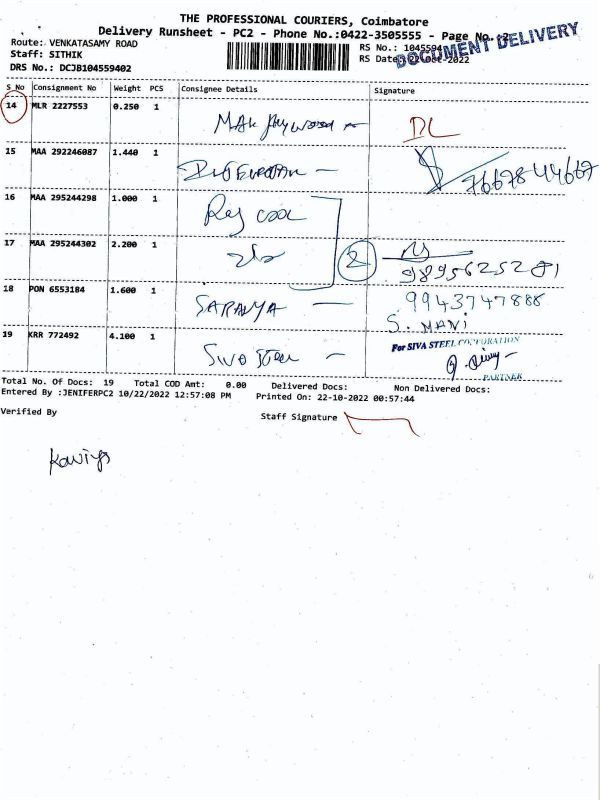 THE PROFESSIONAL COURIERS, Coimbatore
Delivery Runsheet - PC2 - Phone No.:0422-3505555 - Page No. 2
DOCUMENT DELIVERY
Route: VENKATASAMY ROAD
RS No.: 1045594
Staff: SITHIK
RS Date: 22-Oct-2022
DRS No.: DCJB104559402
S_No Consignment No Weight PCS Consignee Details Signature
14 MLR 2227553 0.250 1
DL
15 MAA 292246087 1.440 1
16 MAA 295244298 1.000 1
Raj cool
17 MAA 295244302 2.200 1
2
9895625281
18 PON 6553184 1.600 1
SARANYA
9943747888
S. MANI
19 KRR 772492 4.100 1
For SIVA STEEL CORPORATION
PARTNER
Total No. Of Docs: 19 Total COD Amt: 0.00 Delivered Docs: Non Delivered Docs:
Entered By :JENIFERPC2 10/22/2022 12:57:08 PM Printed On: 22-10-2022 00:57:44
Verified By
Staff Signature